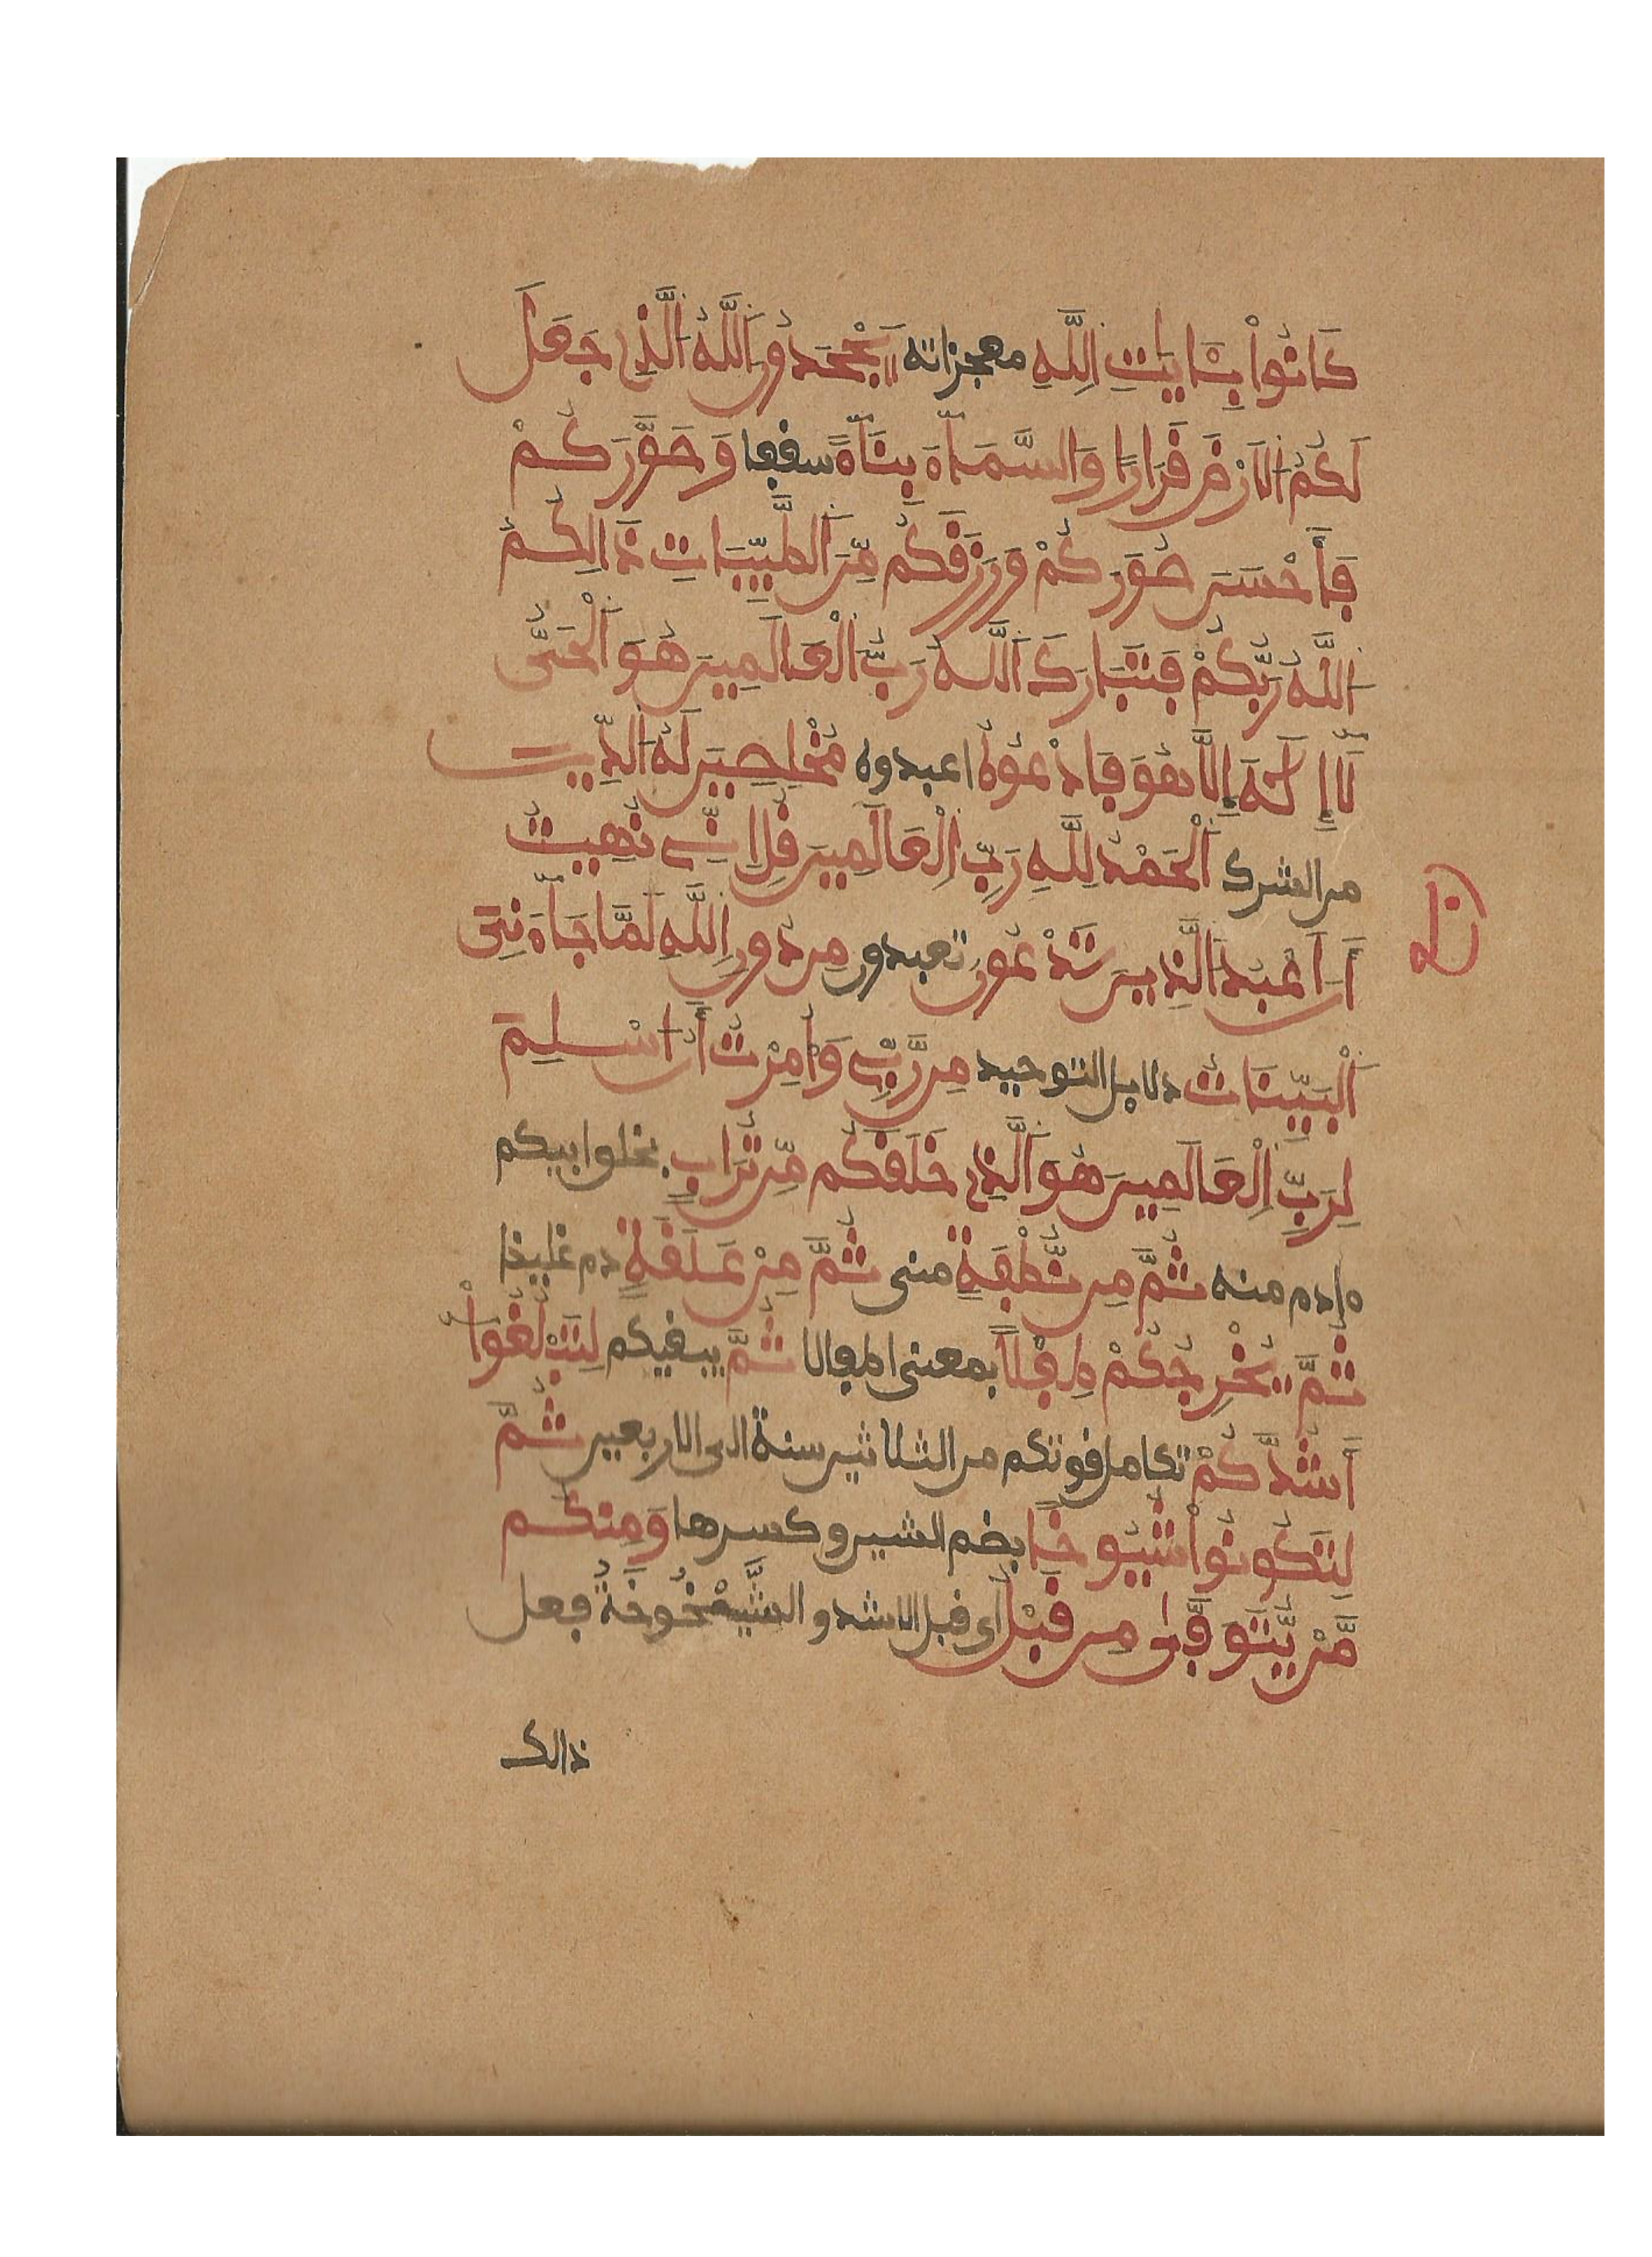 كَانُواْ بِـَٔايَٰتِ اِللَّهِ معجزاته يَجْحَدُونَ اَللَّهُ اُلَّذِے جَعَلَ
لَكُمُ اُلَارْضَ قَرَارًا وَالسَّمَآءَ بِنَآءً سقفا وَصَوَّرَكُمْ
فَأَحْسَنَ صُوَرَكُمْ وَرَزَقَكُم مِّنَ اَلطَّيِّبَاتِ ذَالِكُمُ
اُللَّهُ رَبُّكُمْ فَتَبَارَكَ اَللَّهُ رَبُّ اُلْعَالَمِينَ هُوَ اَلْحَىُّ
لَآ إِلَٰهَ إِلَّا هُوَ فَادْعُوهُ اعبدوه مُخْلِصِينَ لَهُ اُلدِّينَ
من الشرك اَلْحَمْدُ لِلَّهِ رَبِّ اِلْعَالَمِينَ قُلِ انِّے نُهِيتُ
أَنَ اَعْبُدَ اَلَّذِينَ تَدْعُونَ تعبدون مِن دُونِ اِللَّهِ لَمَّا جَآءَنِىَ
اَلْبَيِّنَاتُ دلايل التوحيد مِن رَّبِّے وَأُمِرْتُ أَنُ اسْلِمَ
لِرَبِّ اِلْعَالَمِينَ هُوَ اَلَّذِے خَلَقَكُم مِّن تُرَابٍ بخلق ابيكم
ءادم منه ثُمَّ مِن نُّطْفَةٍ منى ثُمَّ مِنْ عَلَقَةٍ دم غليظ
ثُمَّ يُخْرِجُكُمْ طِفْلًا بمعنى اطفالا ثُمَّ يبقيكم لِتَبْلُغُواْ
أَشُدَّكُمْ تكامل قوتكم من الثلاثين سنة الى الاربعين ثُمَّ
لِتَكُونُواْ شُيُوخًا بضم الشين وكسرها وَمِنكُم
مَّنْ يُّتَوَفَّىٰ مِن قَبْلُ أى قبل الاشد والشَّيْخُوخَةُ فعل
ذالك